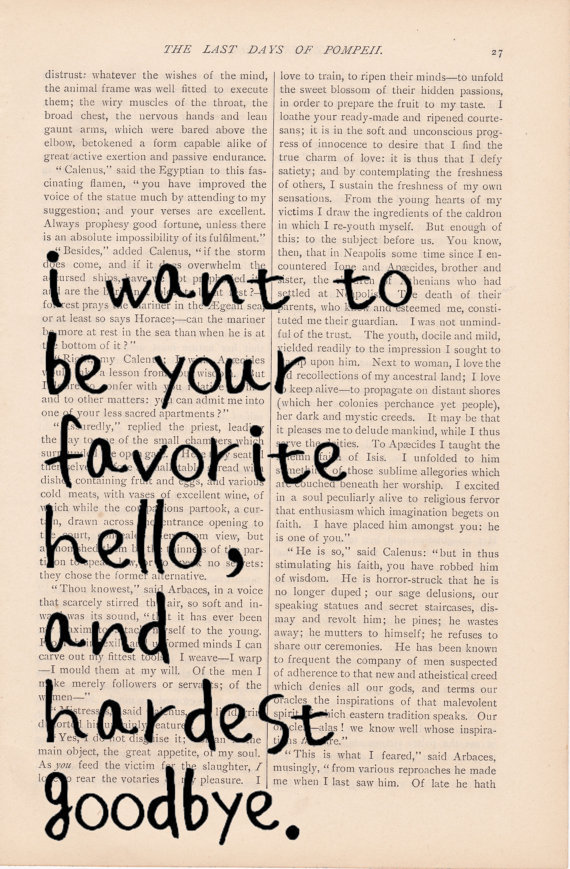 THE LAST DAYS OF POMPEII. 27
distrust: whatever the wishes of the mind,
the animal frame was well fitted to execute
them; the wiry muscles of the throat, the
broad chest, the nervous hands and lean
gaunt arms, which were bared above the
elbow, betokened a form capable alike of
great active exertion and passive endurance.
“Calenus,” said the Egyptian to this fas-
cinating flamen, “you have improved the
voice of the statue much by attending to my
suggestion; and your verses are excellent.
Always prophesy good fortune, unless there
is an absolute impossibility of its fulfilment.”
“Besides,” added Calenus, “if the storm
does come, and if it does overwhelm the
are the
prays the mariner in the Ægean sea,
or at least so says Horace;—can the mariner
be more at rest in the sea than when he is at
the bottom of it?”
my Calenus
a lesson from
confer with
and to other matters: you can admit me into
one of your less sacred apartments?”
replied the priest,
dishes containing fruit and eggs, and various
cold meats, with vases of excellent wine, of
which while the companions partook, a cur-
tain, drawn across the entrance opening to
view, but
they chose the former alternative.
“Thou knowest,” said Arbaces, in a voice
that scarcely stirred the air, so soft and in-
ward was its sound, “that it has ever been
my maxim to attach myself to the young.
minds I can
carve out my fittest tools. I weave—I warp
—I mould them at my will. Of the men I
make merely followers or servants; of the
women—”
Yes, I do not disguise it; woman is the
main object, the great appetite, of my soul.
As you feed the victim for the slaughter, I
love to rear the votaries of my pleasure. I
love to train, to ripen their minds—to unfold
the sweet blossom of their hidden passions,
in order to prepare the fruit to my taste. I
loathe your ready-made and ripened courte-
sans; it is in the soft and unconscious prog-
ress of innocence to desire that I find the
true charm of love: it is thus that I defy
satiety; and by contemplating the freshness
of others, I sustain the freshness of my own
sensations. From the young hearts of my
victims I draw the ingredients of the caldron
in which I re-youth myself. But enough of
this: to the subject before us. You know,
then, that in Neapolis some time since I en-
countered Ione and Apæcides, brother and
sister, the children of Athenians who had
settled at Neapolis. The death of their
parents, who knew and esteemed me, consti-
tuted me their guardian. I was not unmind-
ful of the trust. The youth, docile and mild,
yielded readily to the impression I sought to
stamp upon him. Next to woman, I love the
old recollections of my ancestral land; I love
to keep alive—to propagate on distant shores
(which her colonies perchance yet people),
her dark and mystic creeds. It may be that
it pleases me to delude mankind, while I thus
serve the deities. To Apæcides I taught the
of Isis. I unfolded to him
those sublime allegories which
are couched beneath her worship. I excited
in a soul peculiarly alive to religious fervor
that enthusiasm which imagination begets on
faith. I have placed him amongst you: he
is one of you.”
“He is so,” said Calenus: “but in thus
stimulating his faith, you have robbed him
of wisdom. He is horror-struck that he is
no longer duped; our sage delusions, our
speaking statues and secret staircases, dis-
may and revolt him; he pines; he wastes
away; he mutters to himself; he refuses to
share our ceremonies. He has been known
to frequent the company of men suspected
of adherence to that new and atheistical creed
which denies all our gods, and terms our
oracles the inspirations of that malevolent
spirit of which eastern tradition speaks. Our
oracles—alas! we know well whose inspira-
“This is what I feared,” said Arbaces,
musingly, “from various reproaches he made
me when I last saw him. Of late he hath
i want to
be your
favorite
hello,
and
hardest
goodbye.